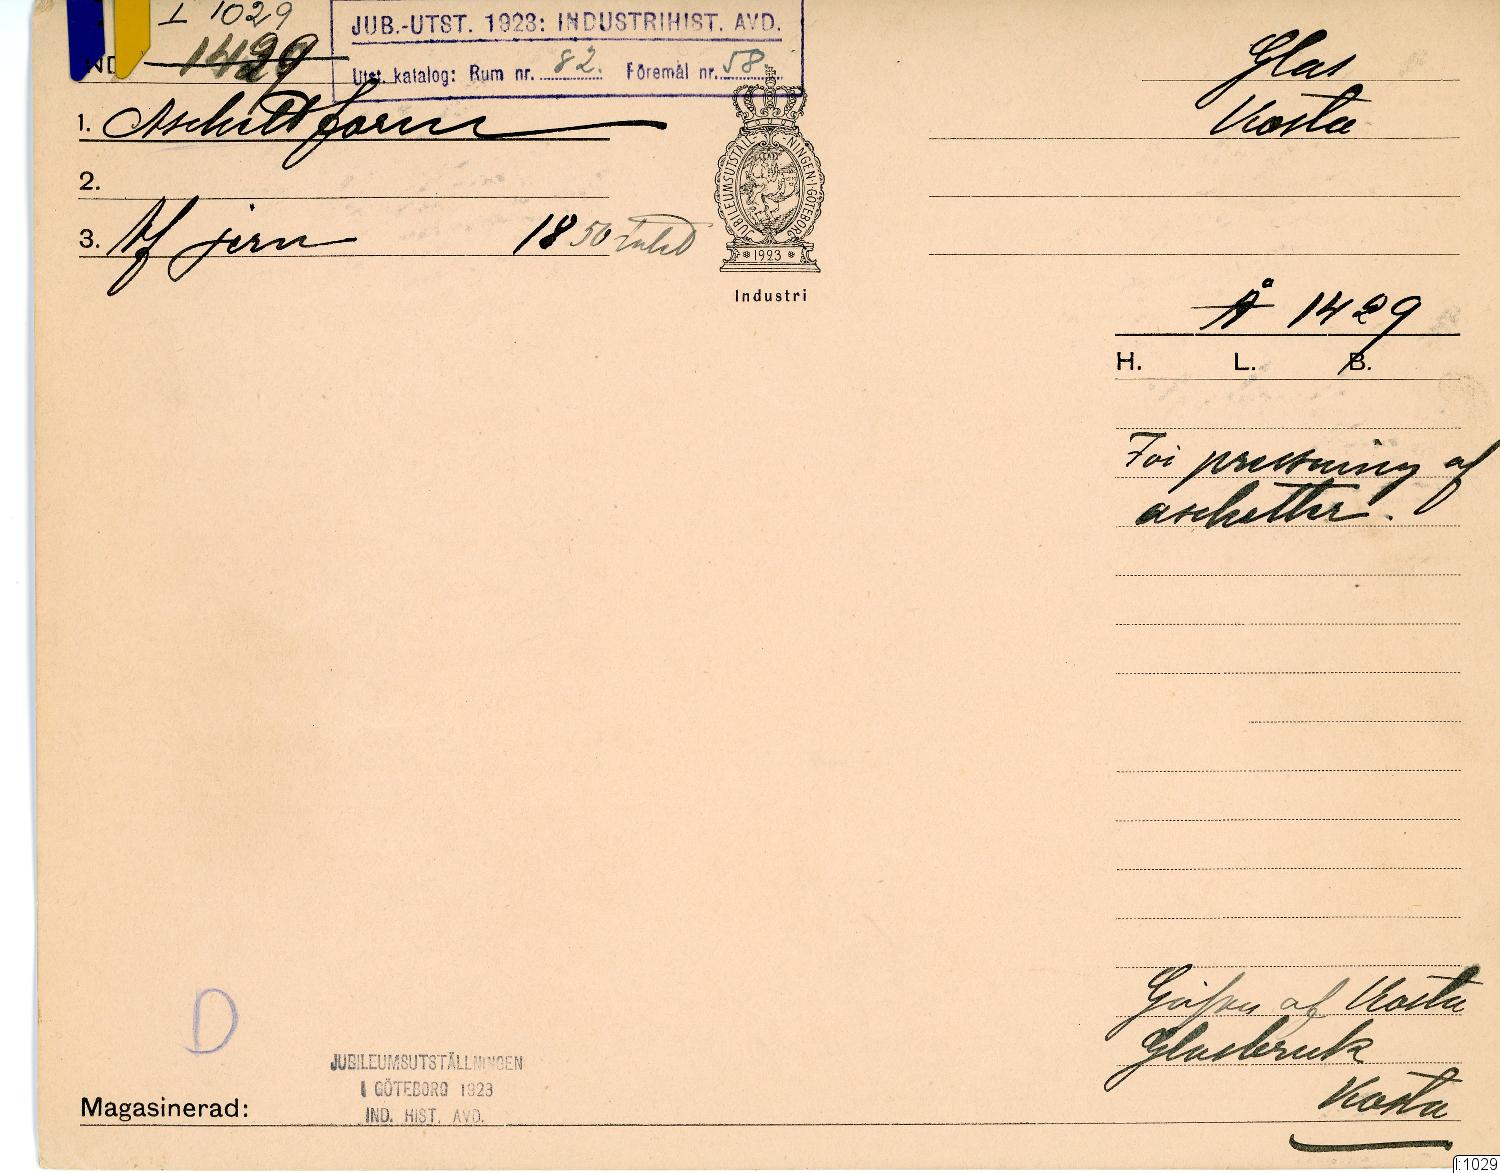 I 1029
JUB.-UTST. 1923: INDUSTRIHIST. AVD.
IND. 1429
Utst. katalog: Rum nr. 82. Föremål nr. 58.
Glas
1. Aschettform
Kosta
2.
3. Af jern 1850 talet
JUBILEUMSUTSTÄLLNINGEN I GÖTEBORG
1923
Industri
Å 1429
H. L. B.
För pressning af
aschetter.
Gåfva af Kosta
Glasbruk
Kosta
D
JUBILEUMSUTSTÄLLNINGEN
I GÖTEBORG 1923
IND. HIST. AVD.
Magasinerad:
I:1029